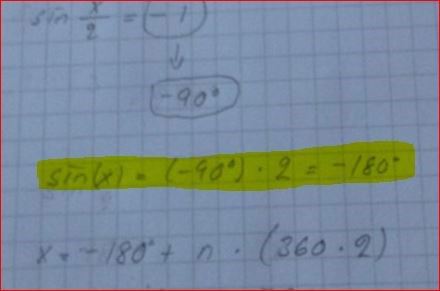 sin x/2 = -1
↓
-90°
sin(x) = (-90°) · 2 = -180°
x = -180° + n · (360 · 2)